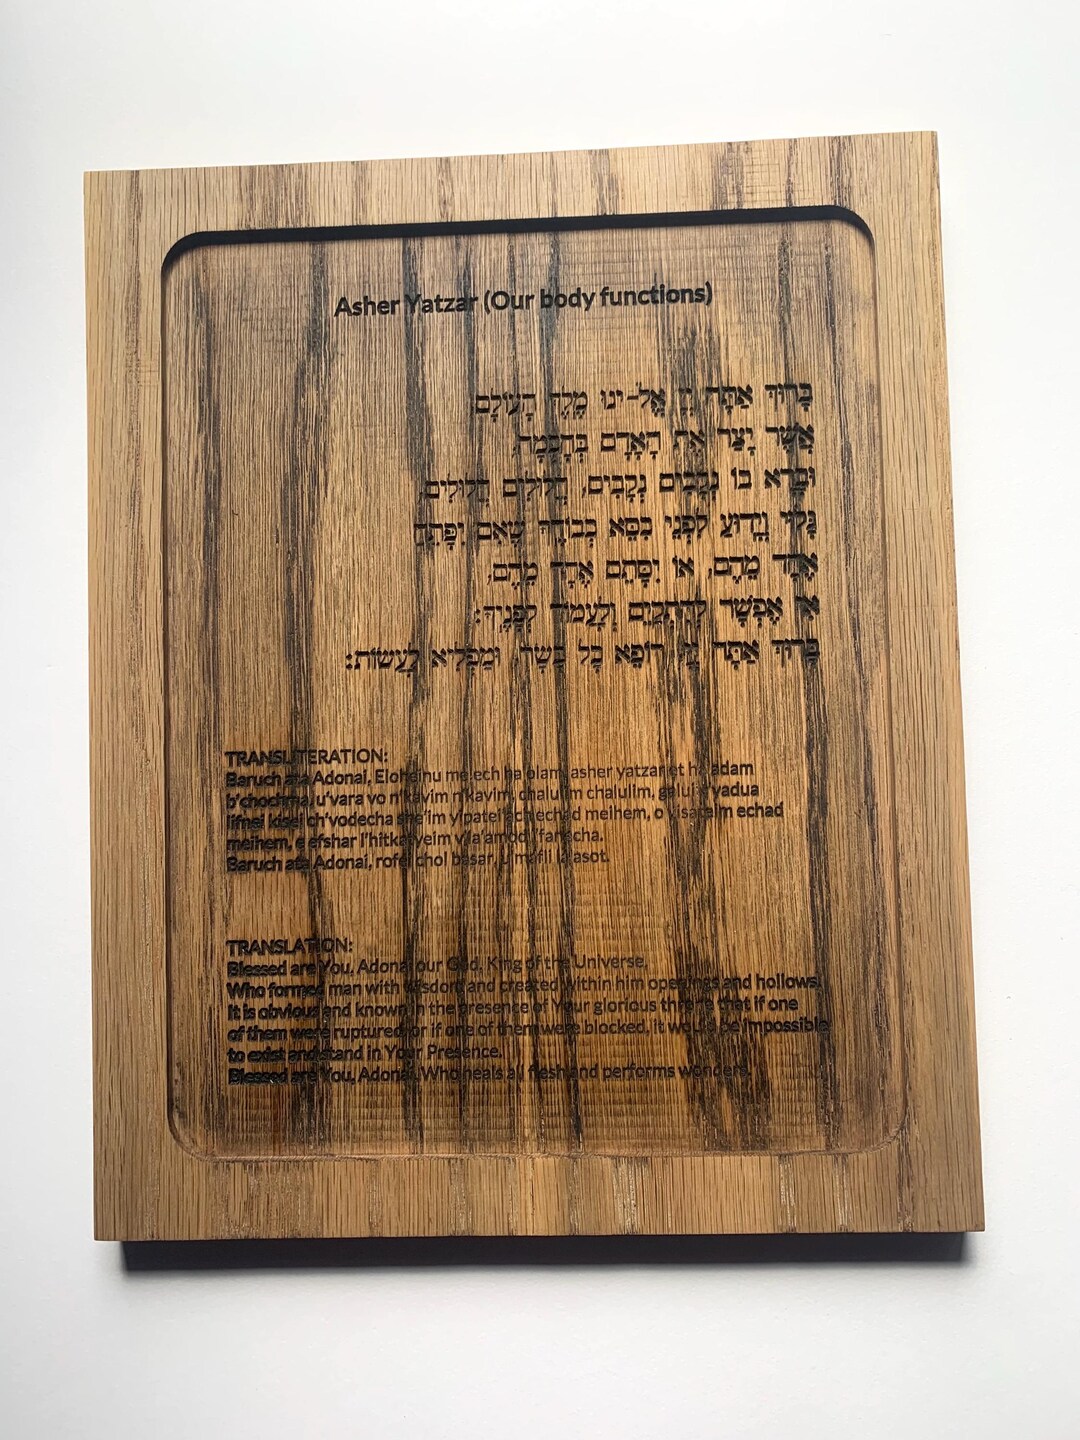 Asher Yatzar (Our body functions)
בָּרוּךְ אַתָּה יְיָ אֱל-ֹינוּ מֶלֶךְ הָעוֹלָם
אֲשֶׁר יָצַר אֶת הָאָדָם בְּחָכְמָה,
וּבָרָא בוֹ נְקָבִים נְקָבִים, חֲלוּלִים חֲלוּלִים,
גָּלוּי וְיָדוּעַ לִפְנֵי כִסֵּא כְבוֹדֶךָ שֶׁאִם יִפָּתֵחַ
אֶחָד מֵהֶם, אוֹ יִסָּתֵם אֶחָד מֵהֶם,
אִי אֶפְשָׁר לְהִתְקַיֵּם וְלַעֲמוֹד לְפָנֶיךָ:
בָּרוּךְ אַתָּה יְיָ, רוֹפֵא כָל בָּשָׂר, וּמַפְלִיא לַעֲשׂוֹת:
TRANSLITERATION:
Baruch ata Adonai, Eloheinu melech ha'olam, asher yatzar et ha'adam
b'chochma, u'vara vo n'kavim n'kavim, chalulim chalulim, galui v'yadua
lifnei kisei ch'vodecha she'im y'patei'ach echad meihem, o y'sateim echad
meihem, e efshar l'hitkayeim v'la'amod l'fanecha.
Baruch ata Adonai, rofei chol basar, u'mafli la'asot.
TRANSLATION:
Blessed are You, Adonai our God, King of the Universe,
Who formed man with wisdom and created within him openings and hollows.
It is obvious and known in the presence of Your glorious throne that if one
of them were ruptured, or if one of them were blocked, it would be impossible
to exist and stand in Your Presence.
Blessed are You, Adonai, Who heals all flesh and performs wonders.